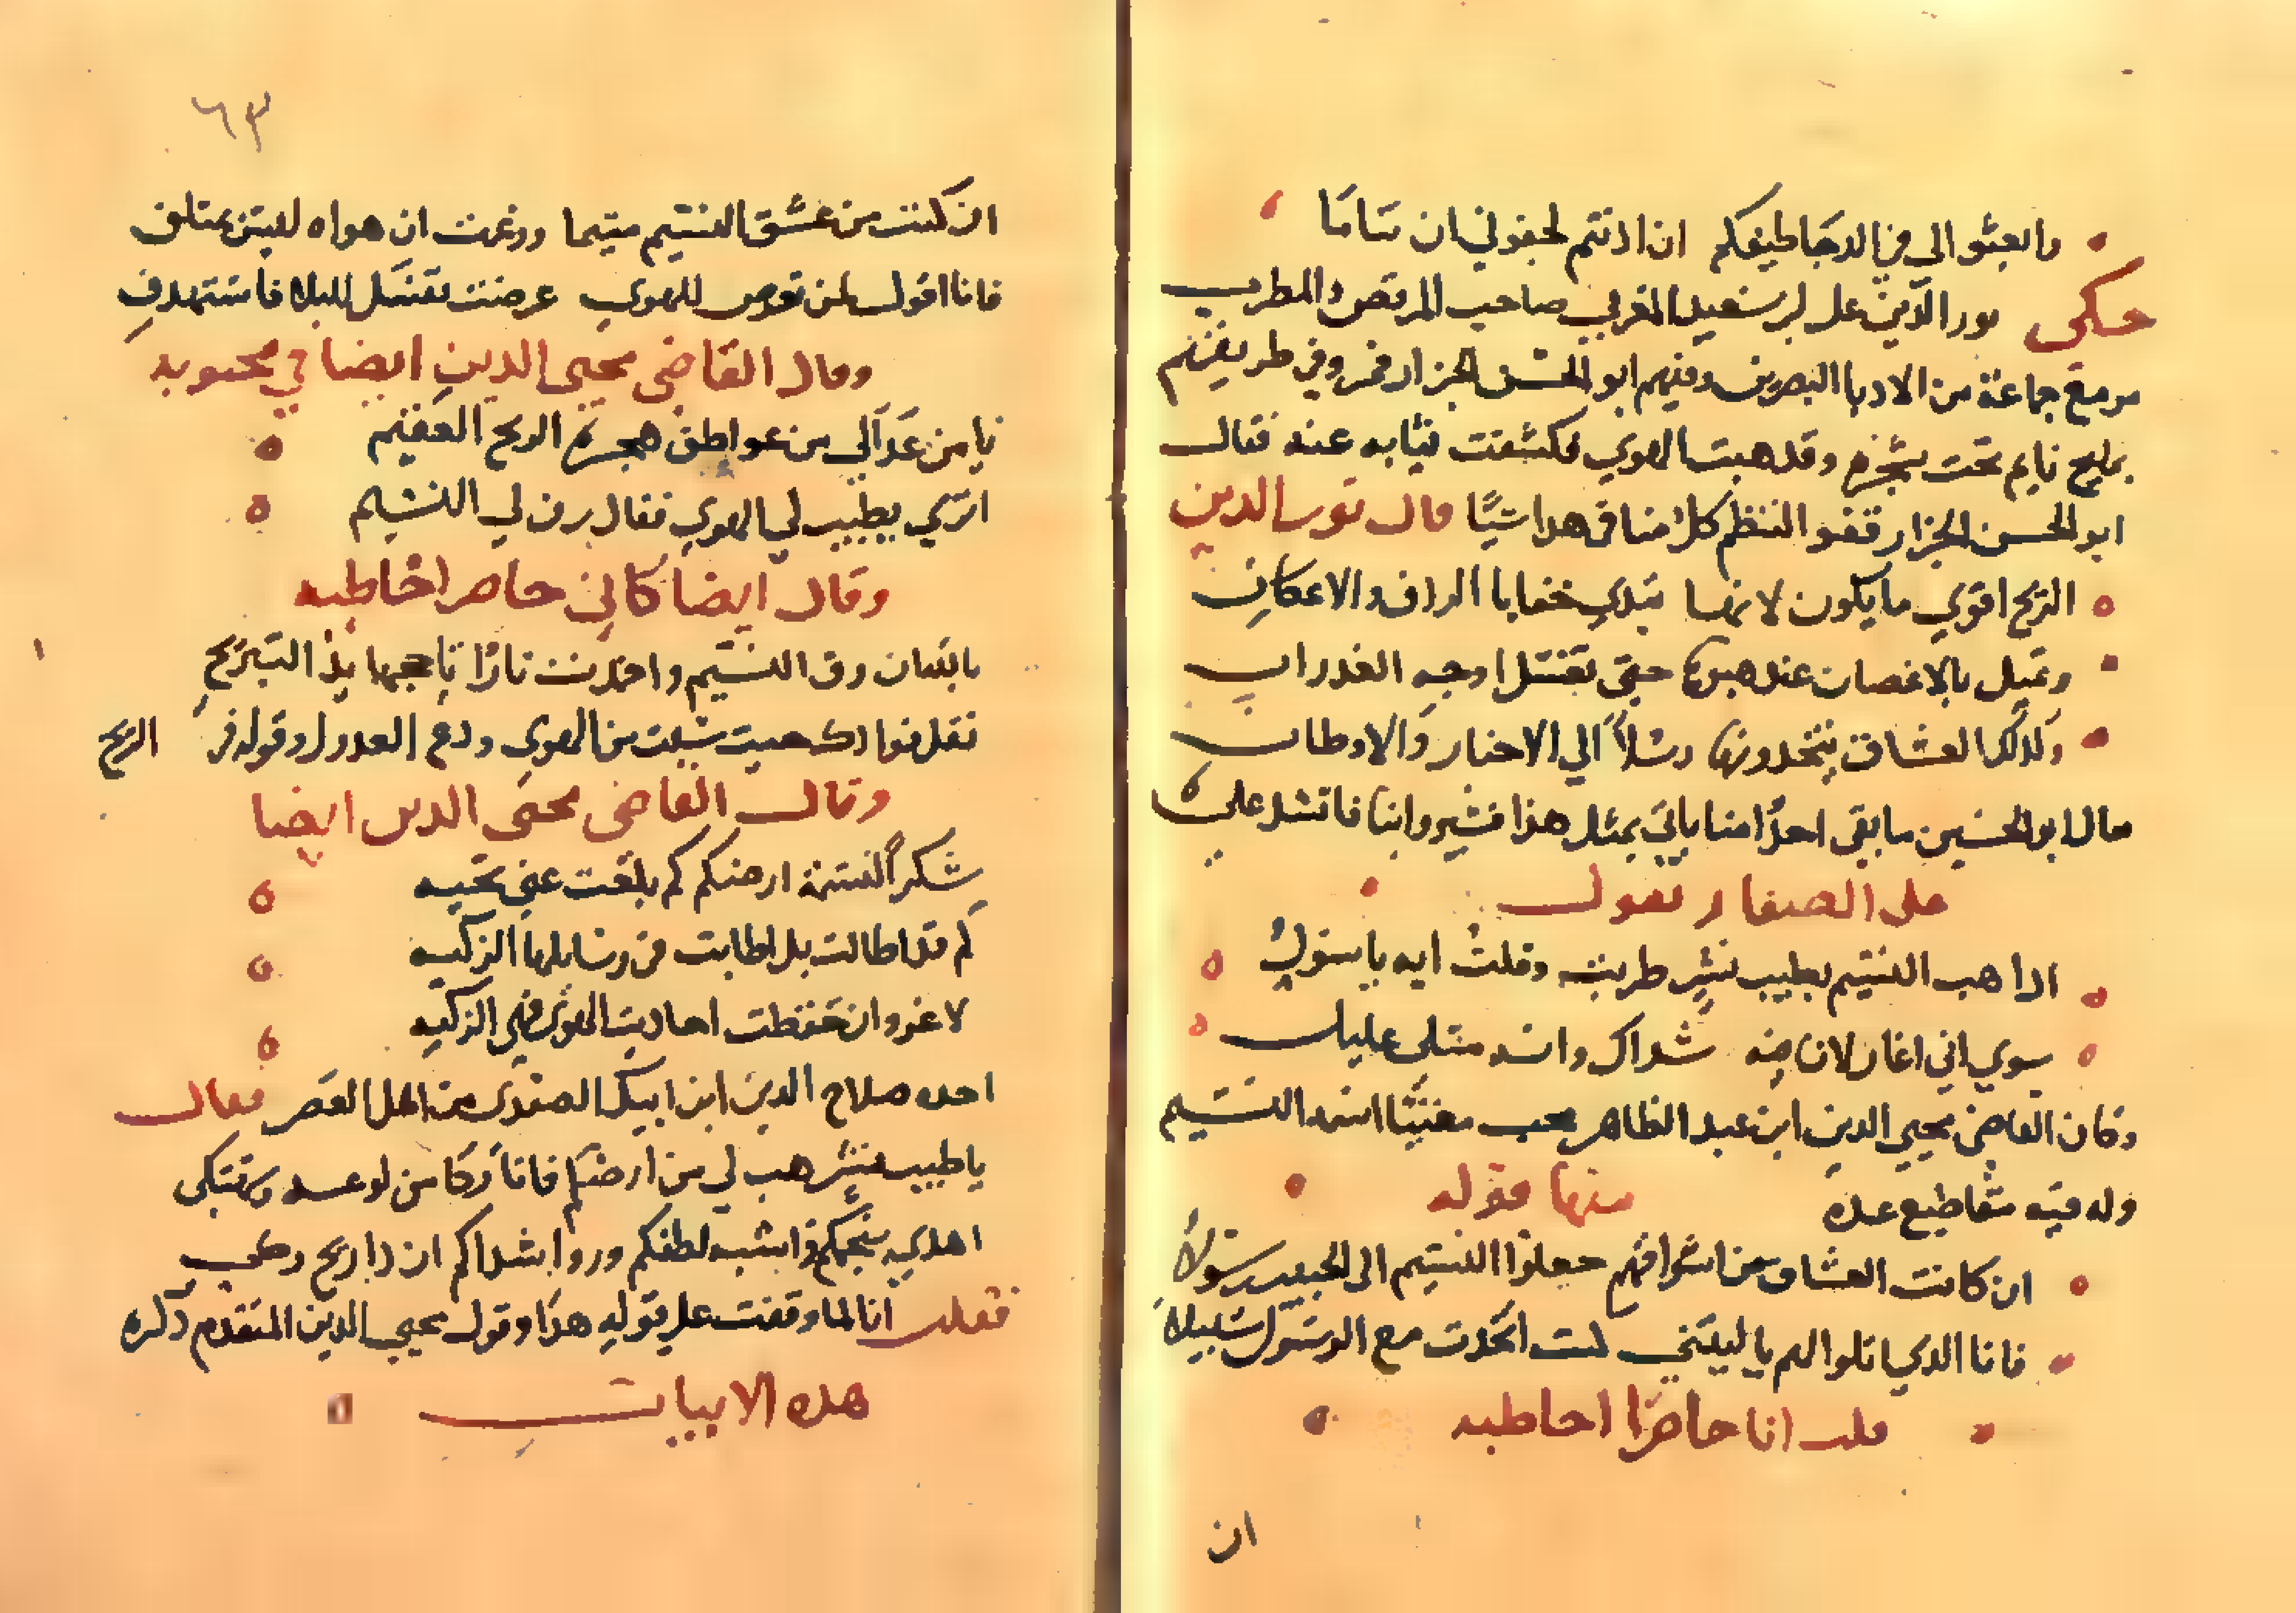 وابعثو الي في الدجا طيفكم ان اذنتم لجفوني ان تناما
حكى نور الدين علي بن سعيد المغربي صاحب المرقص والمطرب
مر مع جماعة من الادبا البصرين ومنهم ابو الحسن الجزار فمر وفي طريقهم
بمليح نايم تحت شجرة وقد هبت الهوي فكشفت ثيابه عنه فقال
ابو الحسن الجزار قفو النظم كل منا في هدا شيا قال نور الدين
الريح اقوي ما يكون لانها تبدي خفايا الردف والاعكان
وتميل بالاغصان عند هبوبها حتى تقبل اوجه الغدران
وكدلك العشاق يتخدونها رسلا الي الاحباب والاوطان
قال ابو الحسين ما بقى احدا منا ياتي بمثل هذا فسيروا بنا فانشد علي
علي الصفار يقول
ادا هب النسيم بطيب نشر طربت وقلت ايه يا رسول
سوي اني اغار لان فيه شداك وانه مثلي عليل
وكان القاضي محيي الدين ابن عبد الظاهر يحب مغنيا اسمه النسيم
وله فيه مقاطيع عدة منها قوله
ان كانت العشاق من اشواقهم جعلوا النسيم الى الحبيب رسولا
فانا الدي اتلوا لهم يا ليتني كنت اتخدت مع الرسول سبيلا
قلت انا حاضرا احاطبه
ان
٦٣
ان كنت من عشق النسيم متيما وزعمت ان هواه ليس بمتلف
فانا اقول لمن تعرض للهوي عرضت نفسك للبلا فاستهدف
وقال القاضي محيى الدين ايضا في محبوبه
يا من غدا لي من عواطف هجره الريح العقيم
اتري يطيب لي الهوي فقال رق لي النسيم
وقال ايضا كاني حاضر اخاطبه
رق النسيم نارا التبريح
من الهوي ودع العدول وقوله في الريح
وقال القاضي محيى الدين ايضا
شكرا لنسمة ارضكم كم بلغت عني تحيه
كم قد اطالت بل اطابت في رسايلها الزكيه
لا غرو ان حفظت احاديث الهوى فهي الزكيه
اخده صلاح الدين ابن ايبك الصفدى من اهل العصر فقال
يا طيب نشر هب لي من ارضكم فاثار كامن لوعتي وتهتكي
اهدي تحيتكم واشبه لطفكم وروا شداكم ان دا ريح دكي
فقلت انا لما وقفت علي قوله هدا وقول محيي الدين المتقدم دكره
هده الابيات